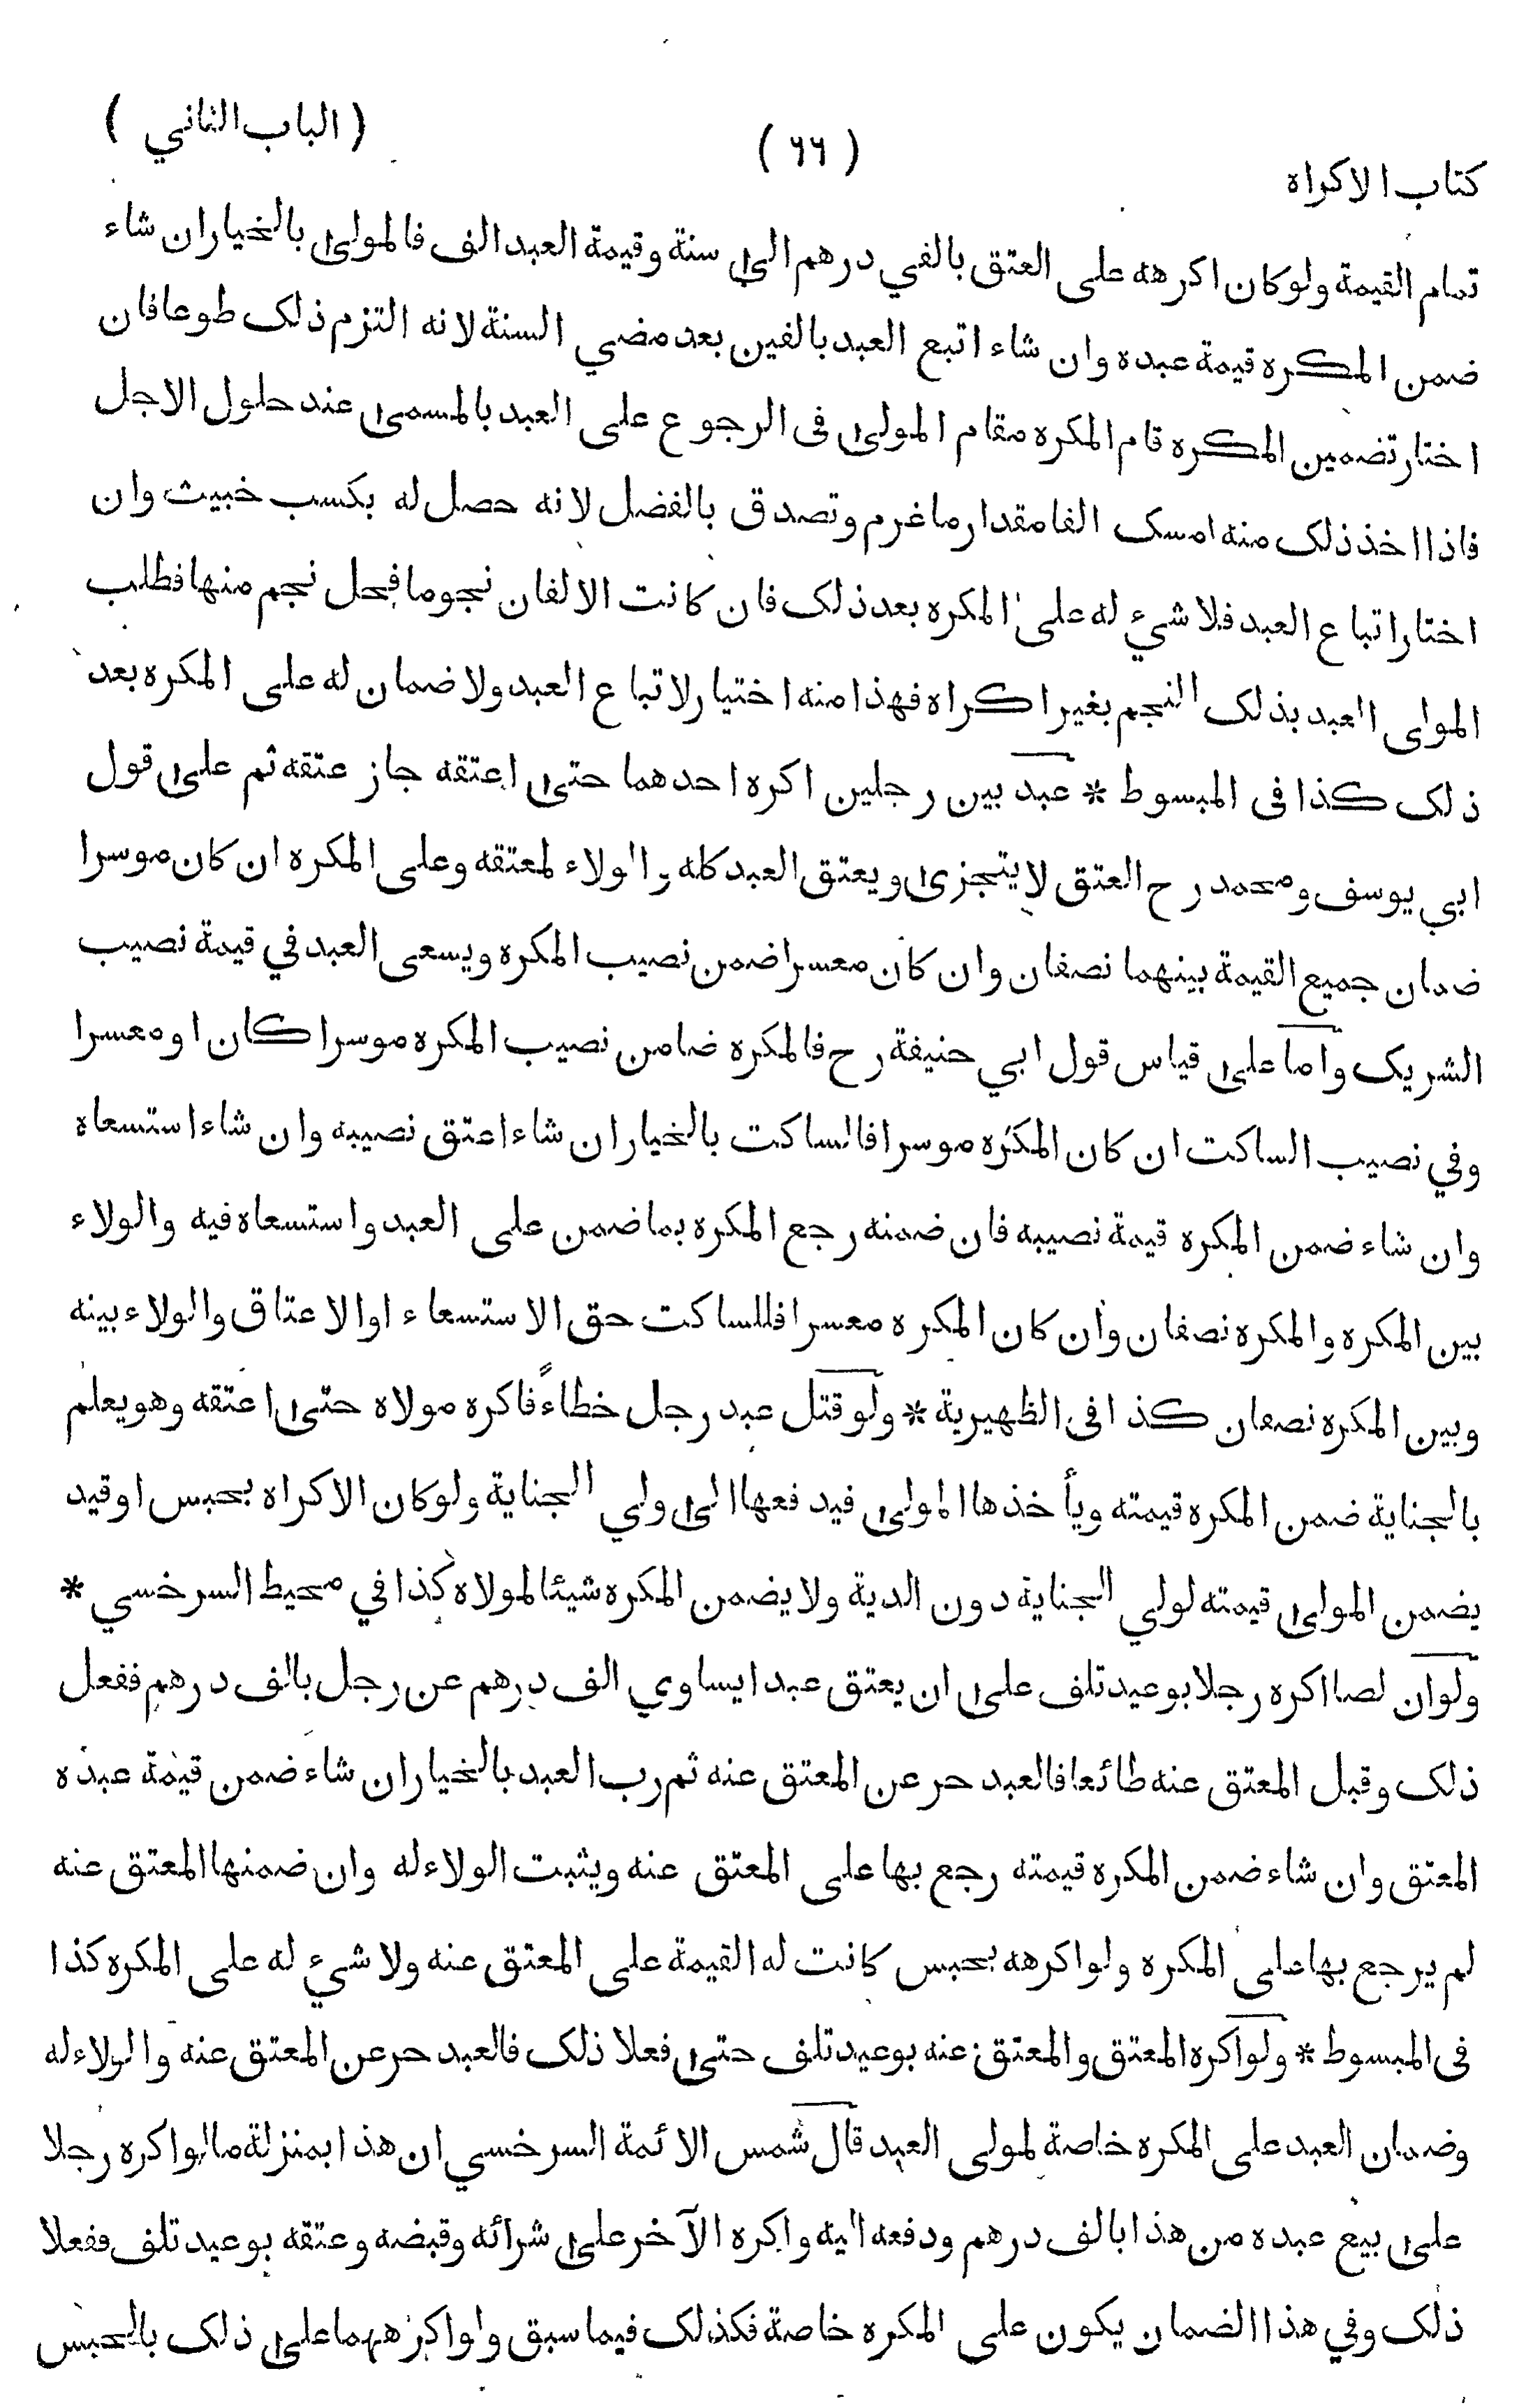 كتاب الاكراه
( ٦٦ )
( الباب الثاني )
تمام القيمة ولو كان اكرهه على العتق بالفي درهم الى سنة وقيمة العبد الف فالمولى بالخيار ان شاء
ضمن المكره قيمة عبده وان شاء اتبع العبد بالفين بعد مضي السنة لانه التزم ذلك طوعا فان
اختار تضمين المكره قام المكره مقام المولى فى الرجوع على العبد بالمسمى عند حلول الاجل
فاذا اخذ ذلك منه امسك الفا مقدار ما غرم وتصدق بالفضل لانه حصل له بكسب خبيث وان
اختار اتباع العبد فلا شيء له على المكره بعد ذلك فان كانت الالفان نجوما فحل نجم منها فطلب
المولى العبد بذلك النجم بغير اكراه فهذا منه اختيار لاتباع العبد ولا ضمان له على المكره بعد
ذلك كذا فى المبسوط * عبد بين رجلين اكره احدهما حتى اعتقه جاز عتقه ثم على قول
ابي يوسف ومحمد رح العتق لا يتجزى ويعتق العبد كله والولاء لمعتقه وعلى المكره ان كان موسرا
ضمان جميع القيمة بينهما نصفان وان كان معسرا ضمن نصيب المكره ويسعى العبد في قيمة نصيب
الشريك واما على قياس قول ابي حنيفة رح فالمكره ضامن نصيب المكره موسرا كان او معسرا
وفي نصيب الساكت ان كان المكره موسرا فالساكت بالخيار ان شاء اعتق نصيبه وان شاء استسعاه
وان شاء ضمن المكره قيمة نصيبه فان ضمنه رجع المكره بما ضمن على العبد واستسعاه فيه والولاء
بين المكره والمكره نصفان وان كان المكره معسرا فللساكت حق الاستسعاء او الاعتاق والولاء بينه
وبين المكره نصفان كذا فى الظهيرية * ولو قتل عبد رجل خطاءً فاكره مولاه حتى اعتقه وهو يعلم
بالجناية ضمن المكره قيمته ويأخذها المولى فيدفعها الى ولي الجناية ولو كان الاكراه بحبس او قيد
يضمن المولى قيمته لولي الجناية دون الدية ولا يضمن المكره شيئا لمولاه كذا في محيط السرخسي *
ولو ان لصا اكره رجلا بوعيد تلف على ان يعتق عبدا يساوي الف درهم عن رجل بالف درهم ففعل
ذلك وقبل المعتق عنه طائعا فالعبد حر عن المعتق عنه ثم رب العبد بالخيار ان شاء ضمن قيمة عبده
المعتق وان شاء ضمن المكره قيمته رجع بها على المعتق عنه ويثبت الولاء له وان ضمنها المعتق عنه
لم يرجع بها على المكره ولو اكرهه بحبس كانت له القيمة على المعتق عنه ولا شيء له على المكره كذا
فى المبسوط * ولو اكره المعتق والمعتق عنه بوعيد تلف حتى فعلا ذلك فالعبد حر عن المعتق عنه والولاء له
وضمان العبد على المكره خاصة لمولى العبد قال شمس الائمة السرخسي ان هذا بمنزلة ما لو اكره رجلا
على بيع عبده من هذا بالف درهم ودفعه اليه واكره الآخر على شرائه وقبضه وعتقه بوعيد تلف ففعلا
ذلك وفي هذا الضمان يكون على المكره خاصة فكذلك فيما سبق ولو اكرههما على ذلك بالحبس